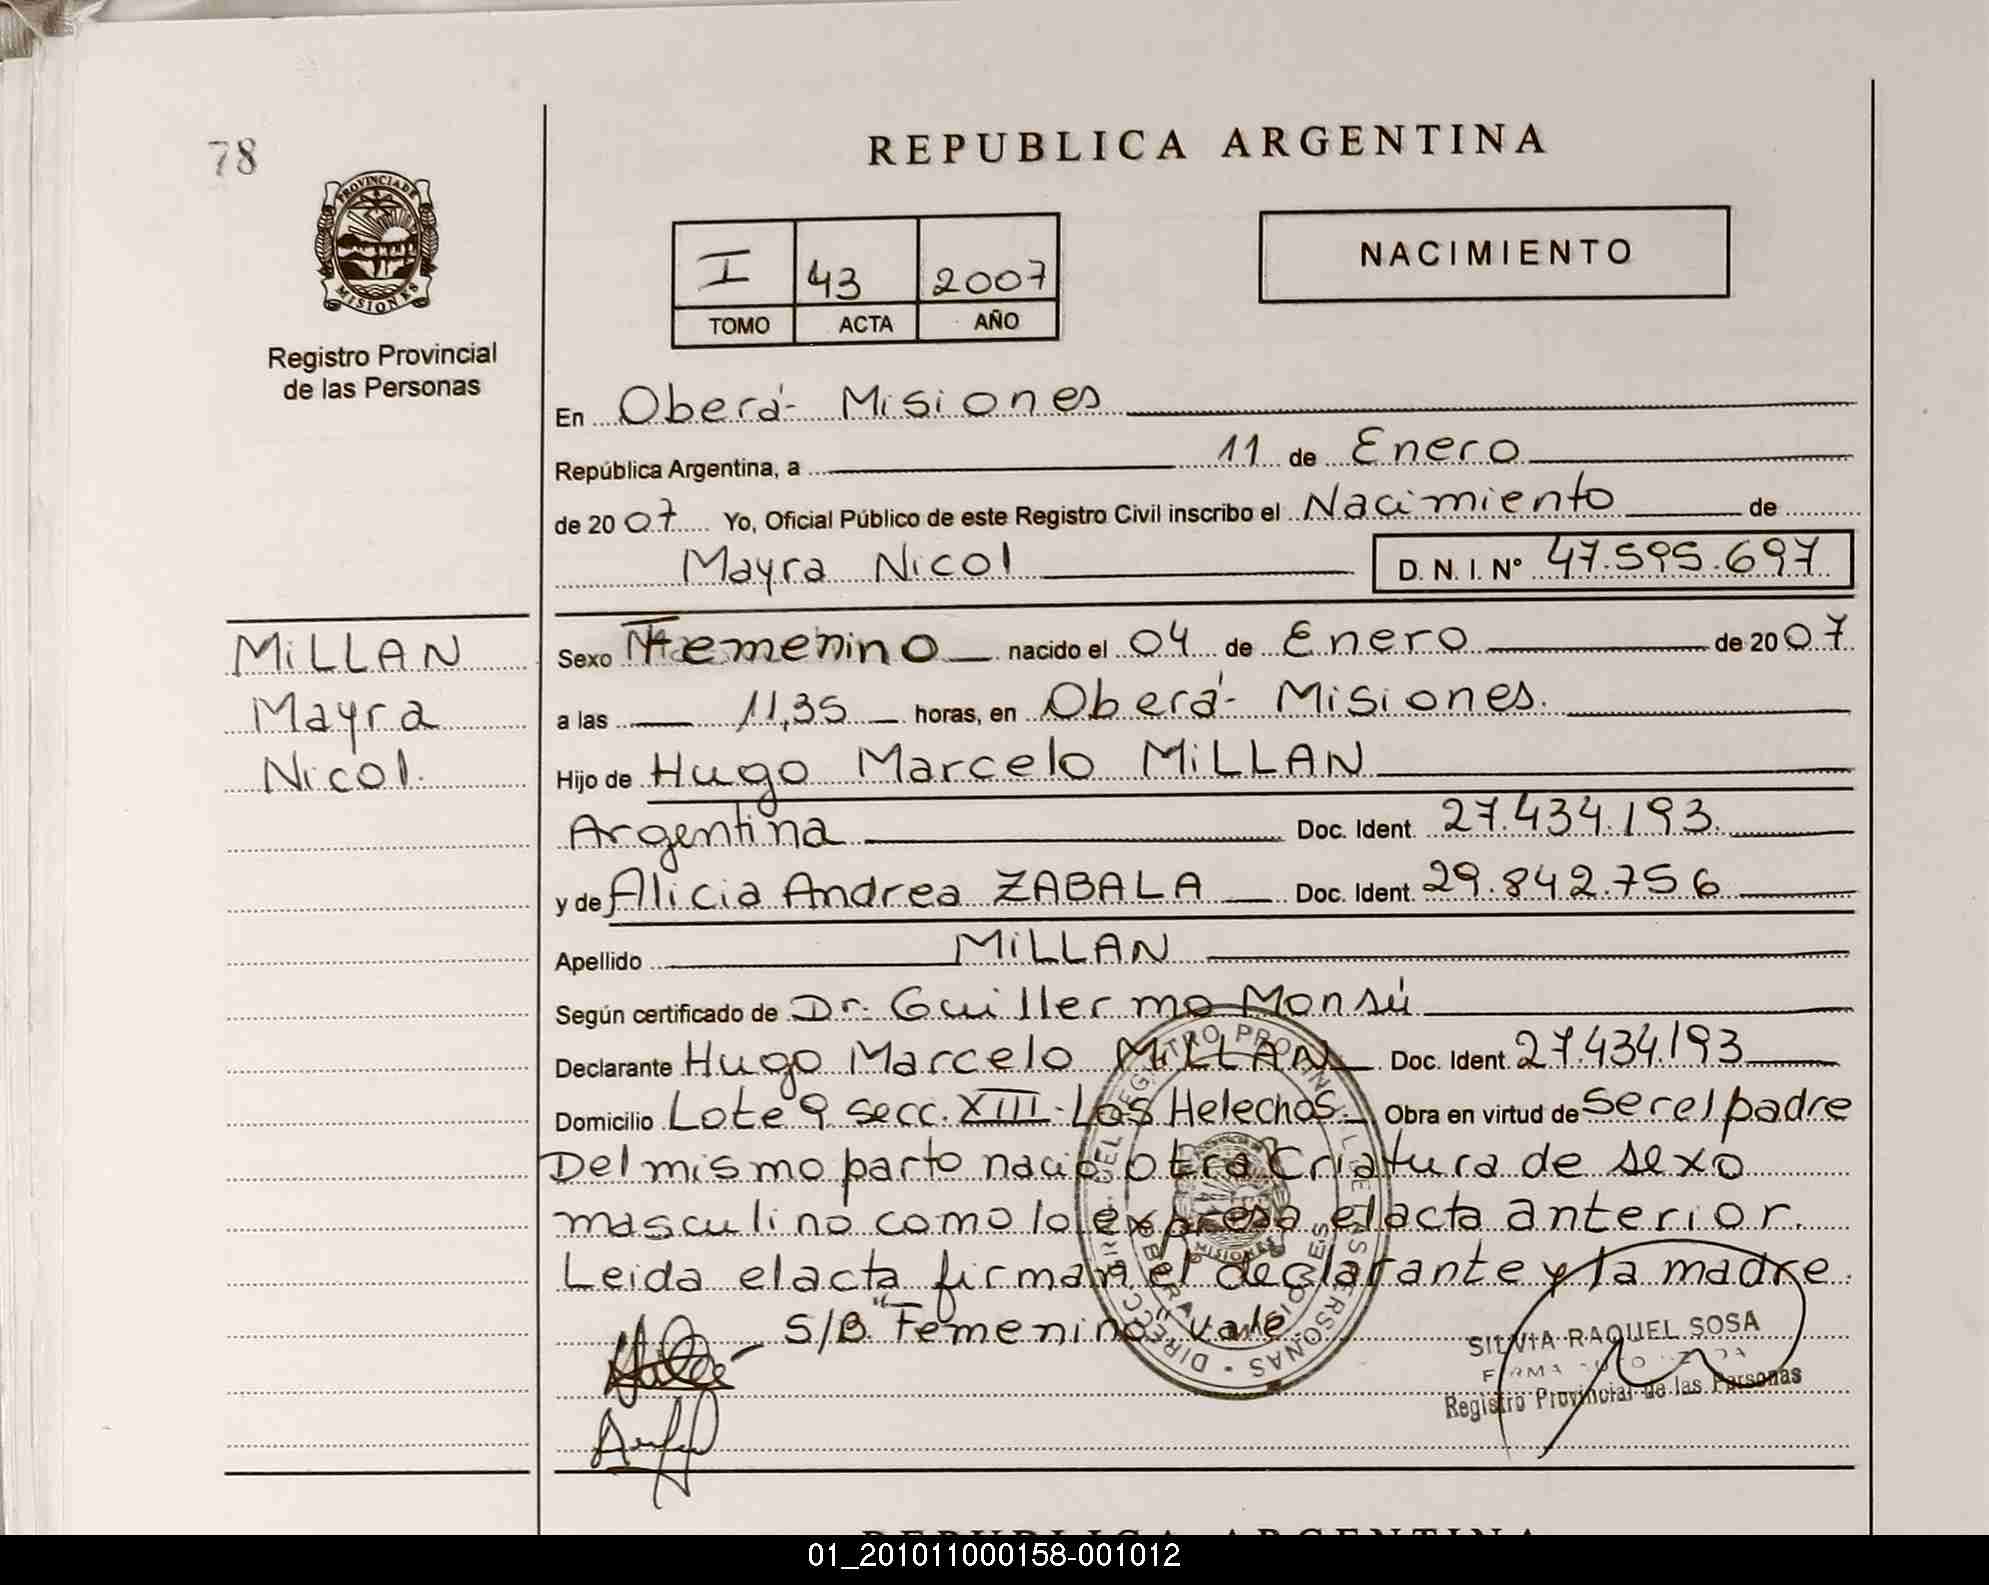 78
REPUBLICA ARGENTINA
PROVINCIA DE
MISIONES
I 43 2007
TOMO ACTA AÑO
NACIMIENTO
Registro Provincial
de las Personas
En Oberá - Misiones
República Argentina, a 11 de Enero
de 2007 Yo, Oficial Público de este Registro Civil inscribo el Nacimiento de
Mayra Nicol D. N. I. Nº 47.595.697
MiLLAN
Mayra
Nicol.
Sexo Femenino nacido el 04 de Enero de 2007
a las 11,35 horas, en Oberá - Misiones.
Hijo de Hugo Marcelo MiLLAN
Argentina Doc. Ident. 27.434.193.
y de Alicia Andrea ZABALA Doc. Ident. 29.842.756
Apellido MiLLAN
Según certificado de Dr. Guillermo Monsú
Declarante Hugo Marcelo MiLLAN Doc. Ident. 27.434.193
Domicilio Lote 9 secc. XIII - Los Helechos. Obra en virtud de ser el padre
Del mismo parto nació otra criatura de sexo
masculino como lo expresa el acta anterior.
Leida el acta firman el declarante y la madre.
S/B "Femenino" vale.
SILVIA RAQUEL SOSA
Registro Provincial de las Personas
REPUBLICA ARGENTINA
01_201011000158-001012